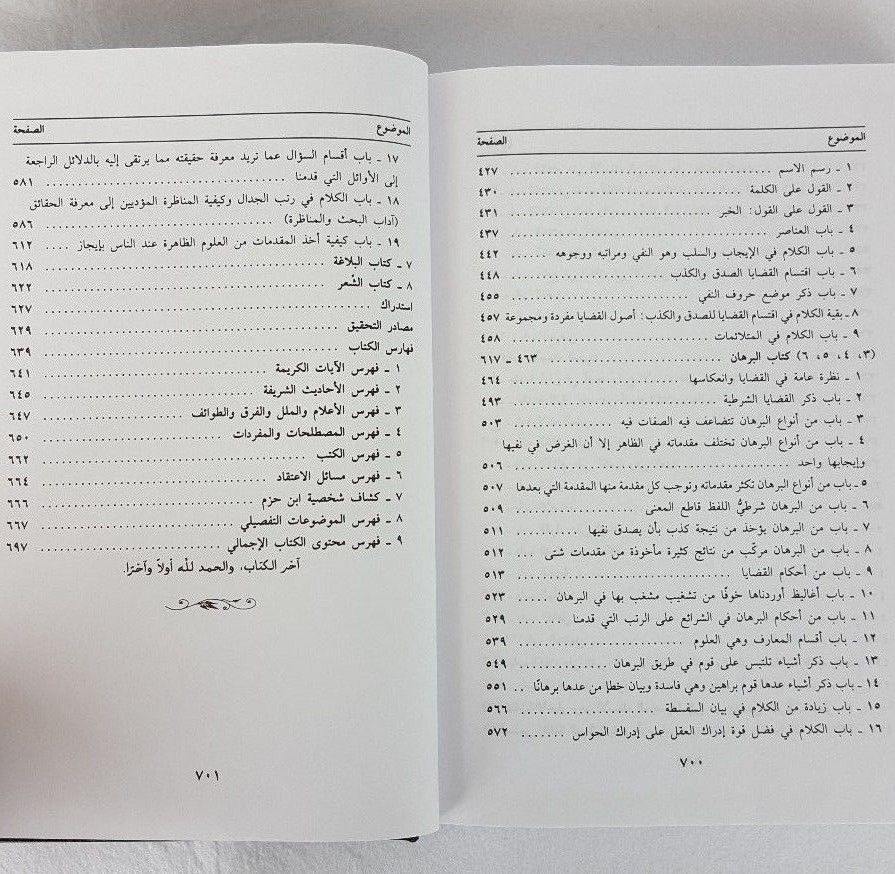 الموضوع الصفحة
١ ـ رسم الاسم ................ ٤٢٧
٢ ـ القول على الكلمة ................ ٤٣٠
٣ ـ القول على القول: الخبر ................ ٤٣١
٤ ـ باب العناصر ................ ٤٣٧
٥ ـ باب الكلام في الإيجاب والسلب وهو النفي ومراتبه ووجوهه ...... ٤٤٢
٦ ـ باب اقتسام القضايا الصدق والكذب ................ ٤٤٨
٧ ـ باب ذكر موضع حروف النفي ................ ٤٥٥
٨ ـ بقية الكلام في اقتسام القضايا للصدق والكذب: أصول القضايا مفردة ومجموعة ٤٥٧
٩ ـ باب الكلام في المتلائمات ................ ٤٥٨
(٣، ٤، ٥، ٦) كتاب البرهان ................ ٤٦٣ ـ ٦١٧
١ ـ نظرة عامة في القضايا وانعكاسها ................ ٤٦٤
٢ ـ باب ذكر القضايا الشرطية ................ ٤٩٣
٣ ـ باب من أنواع البرهان تتضاعف فيه الصفات فيه ................ ٥٠٣
٤ ـ باب من أنواع البرهان تختلف مقدماته في الظاهر إلا أن الغرض في نفيها
وإيجابها واحد ................ ٥٠٦
٥ ـ باب من أنواع البرهان تكثر مقدماته وتوجب كل مقدمة منها المقدمة التي بعدها ٥٠٧
٦ ـ باب من البرهان شرطيُّ اللفظ قاطع المعنى ................ ٥٠٩
٧ ـ باب من البرهان يؤخذ من نتيجة كذب بأن يصدق نفيها ........... ٥١١
٨ ـ باب من البرهان مركّب من نتائج كثيرة مأخوذة من مقدمات شتى ... ٥١٢
٩ ـ باب من أحكام القضايا ................ ٥١٣
١٠ ـ باب أغاليط أوردناها خوفًا من تشغيب مشغب بها في البرهان ..... ٥٢٣
١١ ـ باب من أحكام البرهان في الشرائع على الرتب التي قدمنا ........ ٥٢٩
١٢ ـ باب أقسام المعارف وهي العلوم ................ ٥٣٩
١٣ ـ باب ذكر أشياء تلتبس على قوم في طريق البرهان ............. ٥٤٩
١٤ ـ باب ذكر أشياء عدها قوم براهين وهي فاسدة وبيان خطإ من عدها برهانًا .. ٥٥١
١٥ ـ باب زيادة من الكلام في بيان السفسطة ................ ٥٦٦
١٦ ـ باب الكلام في فضل قوة إدراك العقل على إدراك الحواس ....... ٥٧٢
٧٠٠
الموضوع الصفحة
١٧ ـ باب أقسام السؤال عما تريد معرفة حقيقته مما يرتقى إليه بالدلائل الراجعة
إلى الأوائل التي قدمنا ................ ٥٨١
١٨ ـ باب الكلام في رتب الجدال وكيفية المناظرة المؤديين إلى معرفة الحقائق
(آداب البحث والمناظرة) ................ ٥٨٦
١٩ ـ باب كيفية أخذ المقدمات من العلوم الظاهرة عند الناس بإيجاز .... ٦١٢
٧ ـ كتاب البلاغة ................ ٦١٨
٨ ـ كتاب الشّعر ................ ٦٢٢
استدراك ................ ٦٢٧
مصادر التحقيق ................ ٦٢٩
فهارس الكتاب ................ ٦٣٩
١ ـ فهرس الآيات الكريمة ................ ٦٤١
٢ ـ فهرس الأحاديث الشريفة ................ ٦٤٥
٣ ـ فهرس الأعلام والملل والفرق والطوائف ................ ٦٤٧
٤ ـ فهرس المصطلحات والمفردات ................ ٦٥٠
٥ ـ فهرس الكتب ................ ٦٦٢
٦ ـ فهرس مسائل الاعتقاد ................ ٦٦٤
٧ ـ كشاف شخصية ابن حزم ................ ٦٦٦
٨ ـ فهرس الموضوعات التفصيلي ................ ٦٦٧
٩ ـ فهرس محتوى الكتاب الإجمالي ................ ٦٩٧
آخر الكتاب، والحمد لله أولاً وآخرًا.
٧٠١